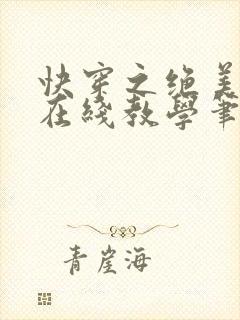 快穿之绝美
在线教学笔
青崖海